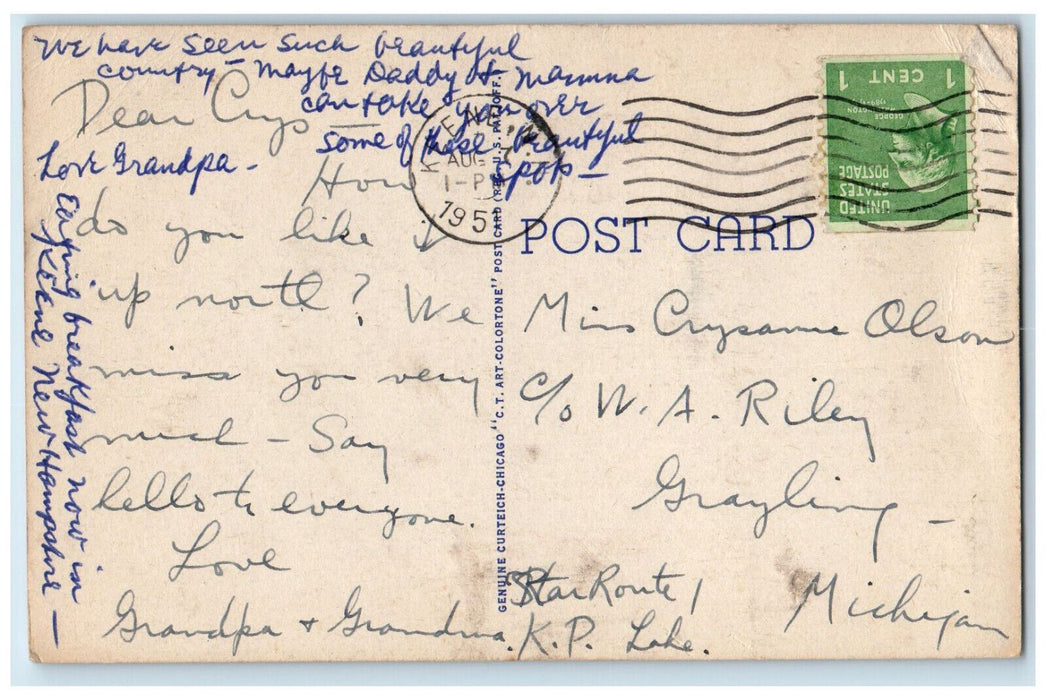 We have seen such beautiful
country - Maybe Daddy & Mamma
can take you over
some of these beautiful
spots -
Love Grandpa -
Eating breakfast now in
Keene New Hampshire -
Dear Crys
How
do you like it
up north? We
miss you very
much - Say
hello to everyone.
Love
Grandpa & Grandma.
GENUINE CURTEICH-CHICAGO "C.T. ART-COLORTONE" POST CARD (REG. U.S. PAT. OFF.)
KEENE
AUG
1-P
195
1 CENT 1
GEORGE WASHINGTON
UNITED
STATES
POSTAGE
POST CARD
Miss Crysanne Olson
c/o W. A. Riley
Grayling -
Star Route 1 Michigan
K.P. Lake.